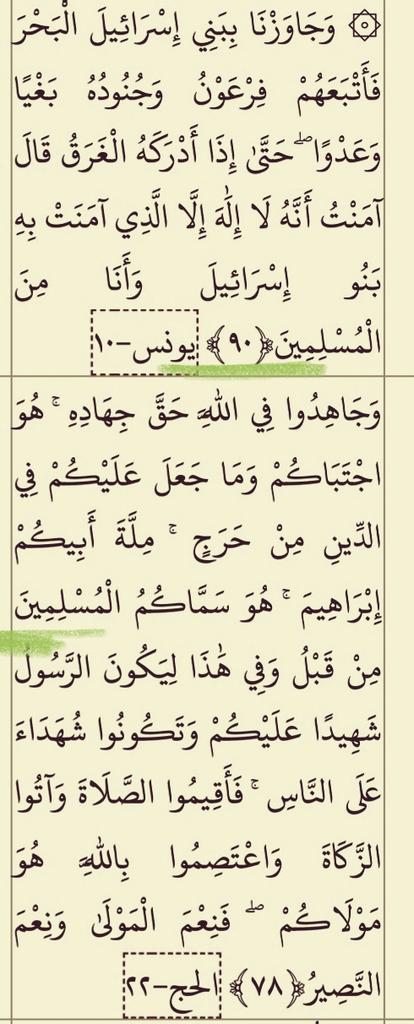 ۞ وَجَاوَزْنَا بِبَنِي إِسْرَائِيلَ الْبَحْرَ
فَأَتْبَعَهُمْ فِرْعَوْنُ وَجُنُودُهُ بَغْيًا
وَعَدْوًا ۖ حَتَّىٰ إِذَا أَدْرَكَهُ الْغَرَقُ قَالَ
آمَنْتُ أَنَّهُ لَا إِلَٰهَ إِلَّا الَّذِي آمَنَتْ بِهِ
بَنُو إِسْرَائِيلَ وَأَنَا مِنَ
الْمُسْلِمِينَ﴿٩٠﴾ يونس-١٠
وَجَاهِدُوا فِي اللَّهِ حَقَّ جِهَادِهِ ۚ هُوَ
اجْتَبَاكُمْ وَمَا جَعَلَ عَلَيْكُمْ فِي
الدِّينِ مِنْ حَرَجٍ ۚ مِلَّةَ أَبِيكُمْ
إِبْرَاهِيمَ ۚ هُوَ سَمَّاكُمُ الْمُسْلِمِينَ
مِنْ قَبْلُ وَفِي هَٰذَا لِيَكُونَ الرَّسُولُ
شَهِيدًا عَلَيْكُمْ وَتَكُونُوا شُهَدَاءَ
عَلَى النَّاسِ ۚ فَأَقِيمُوا الصَّلَاةَ وَآتُوا
الزَّكَاةَ وَاعْتَصِمُوا بِاللَّهِ هُوَ
مَوْلَاكُمْ ۖ فَنِعْمَ الْمَوْلَىٰ وَنِعْمَ
النَّصِيرُ﴿٧٨﴾ الحج-٢٢